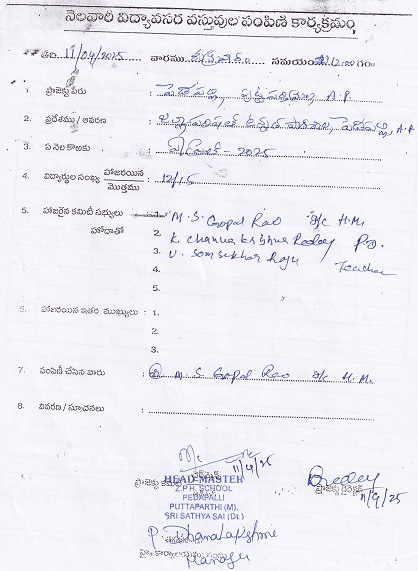 నెలవారీ విద్యావసర వస్తువుల పంపిణి కార్యక్రమం
తేది. 11/04/2025 వారము శుక్రవారం సమయం 12:00 గం
1. ప్రాజెక్టు పేరు : పెదపల్లి, పుట్టపర్తి మం, A.P
2. ప్రదేశము / ఆవరణ : జిల్లా పరిషత్ ఉన్నత పాఠశాల, పెదపల్లి, A.P
3. ఏ నెల కొఱకు : ఏప్రిల్ - 2025
4. విద్యార్థుల సంఖ్య హాజరయిన / మొత్తము : 12/15
5. హాజరైన కమిటీ సభ్యులు 1. M. S. Gopal Rao I/c H.M.
హోదాతో 2. K. Chandra Krishna Reddy P.D.
3. V. Som Sekhar Raju Teacher
4.
5.
6. హాజరయిన ఇతర ముఖ్యులు : 1.
2.
3.
7. పంపిణీ చేసిన వారు : M S Gopal Rao I/c H.M.
8. వివరణ / సూచనలు :
11/4/25
HEAD MASTER
Z.P.H. SCHOOL
PEDAPALLI
PUTTAPARTHI (M).
SRI SATHYA SAI (Dt.)
Reddy
ప్రాజెక్టు డైరెక్టర్
11/4/25
P Dhanalakshmi
Manager